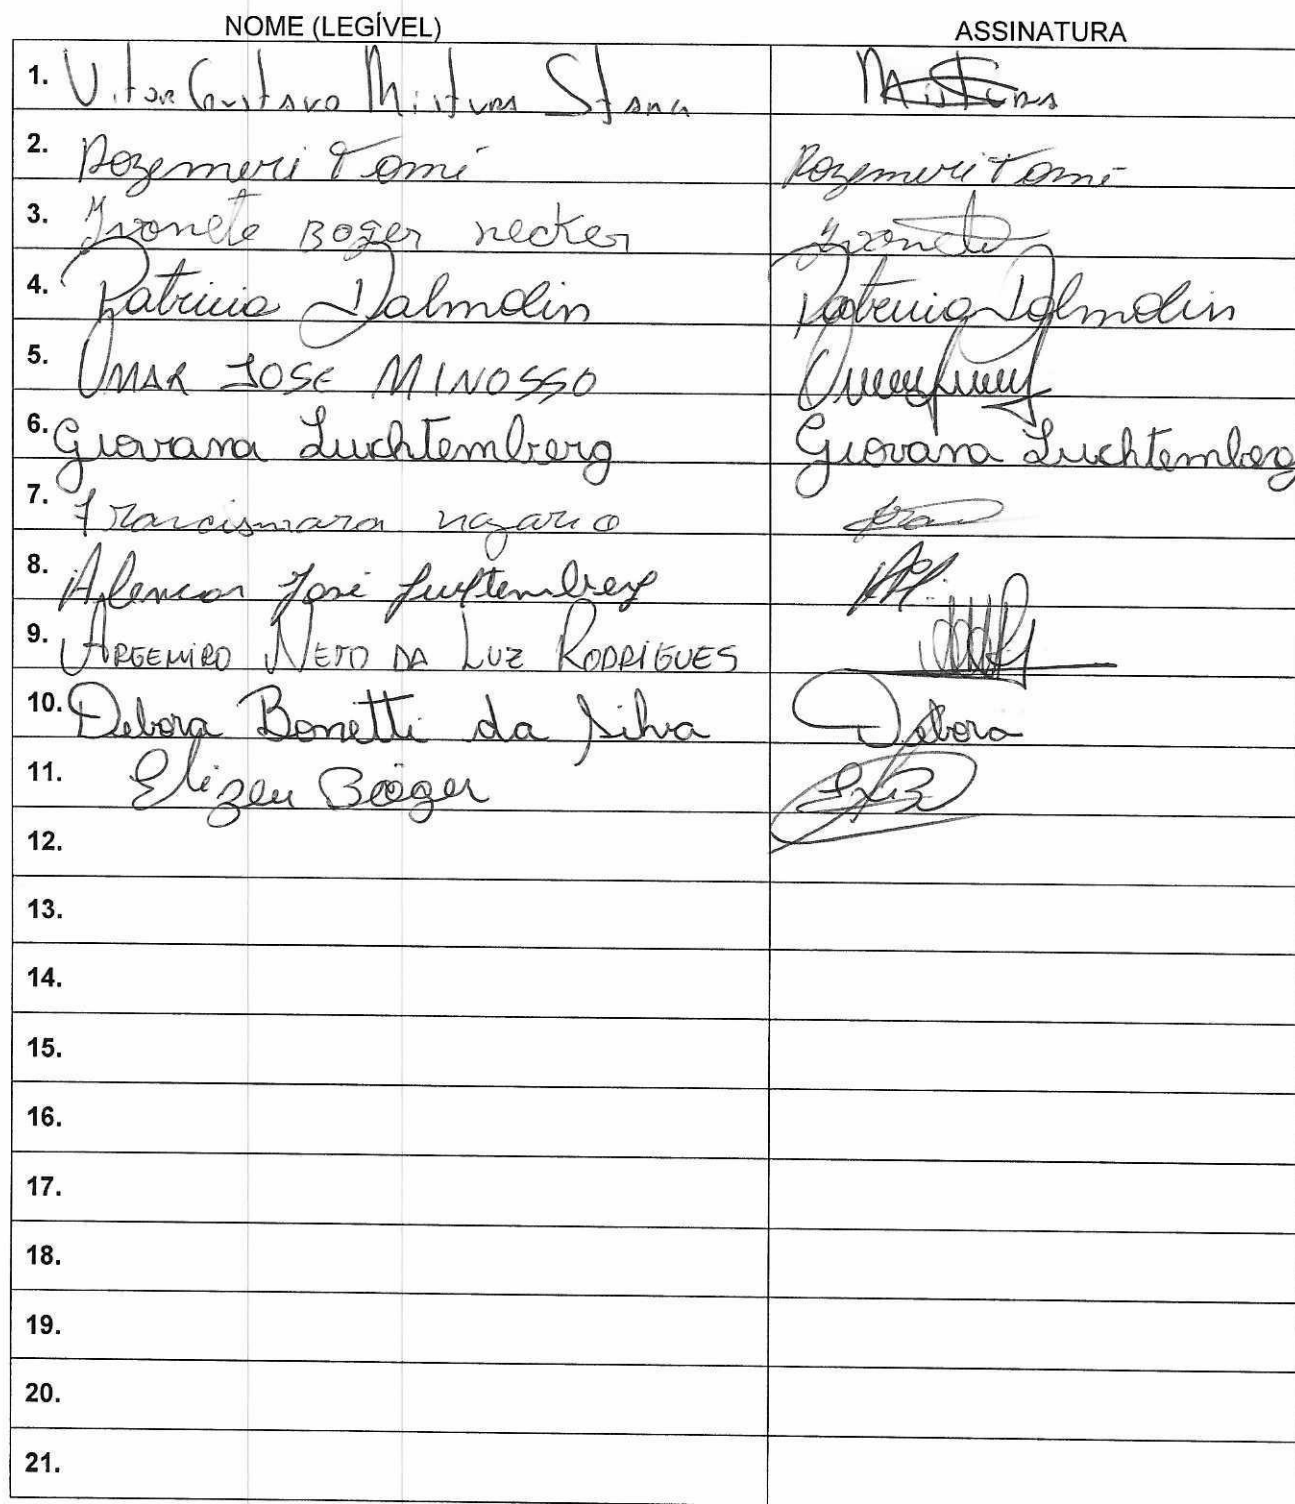 NOME (LEGÍVEL) ASSINATURA
1. Vitor Gustavo Mistura Stang Mistura
2. Rozemeri Tomé Rozemeri Tomé
3. Ivonete Boger necker Ivonete
4. Patricia Dalmolin Patricia Dalmolin
5. OMAR JOSE MINOSSO
6. Giovana Luchtemberg Giovana Luchtemberg
7. Francismara nazario
8. Alencar José Luchtemberg
9. ARGEMIRO NETO DA LUZ RODRIGUES
10. Debora Bonetti da Silva Debora
11. Elizeu Böger
12.
13.
14.
15.
16.
17.
18.
19.
20.
21.